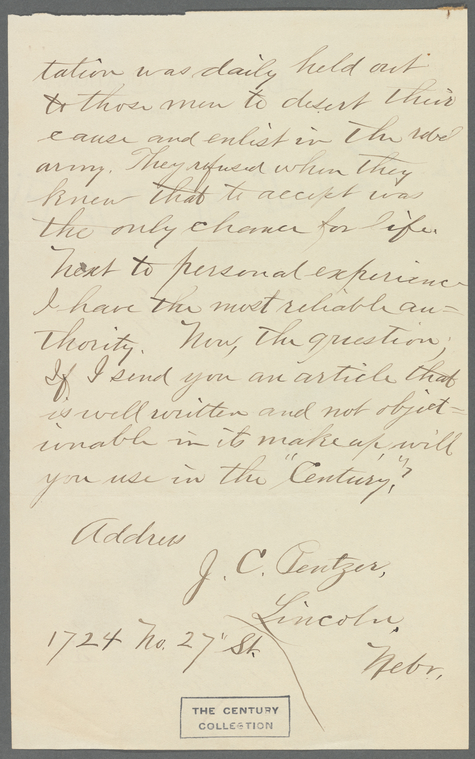 tation was daily held out
to those men to desert their
cause and enlist in the rebel
army. They refused when they
knew that to accept was
the only chance for life.
Next to personal experience
I have the most reliable au=
thority. Now, the question;
If I send you an article that
is well written and not objet=
ionable in its make up, will
you use in the "Century,"?
Address
J. C. Pentzer,
Lincoln,
1724 No. 27" St.
Nebr.
THE CENTURY
COLLECTION